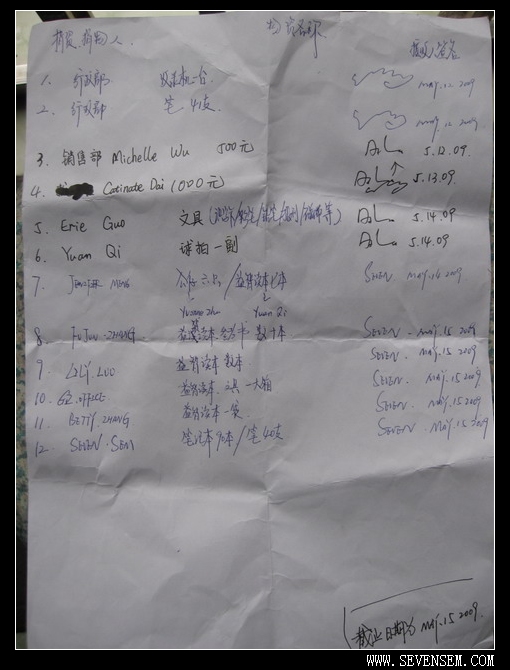 捐款、捐物人 物资名称 接收人签名
1. 行政部 一台 May.12 2009
2. 行政部 笔 41支 May.12 2009
3. 销售部 Michelle Wu 500元 5.12.09.
4. Catinate Dai 1000元 5.13.09.
5. Eric Guo 文具 5.14.09
6. Yuan Qi 球拍一副 5.14.09.
7. Jennifer Meng 公仔六只/益智读本七本 Seven May.14 2009
Yuan Qi
8. FuJun.Zhang 数十本 Seven. May.15 2009
9. Lily.Luo 益智读本 数本 Seven. May.15 2009
10. GZ.office 益智读本.文具 一大箱 Seven. May.15 2009
11. Betty.Zhang 益智读本一袋 Seven. May.15 2009
12. Seven.Sem 笔记本90本/笔40支 Seven. May.15 2009
截止日期为 May.15 2009.
www.SEVENSEM.COM